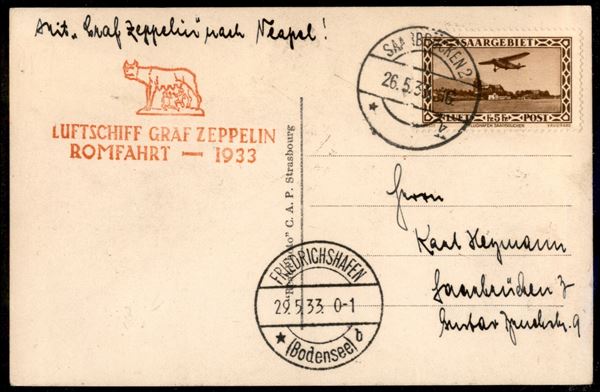 mit „Graf Zeppelin“ nach Neapel!
LUFTSCHIFF GRAF ZEPPELIN
ROMFAHRT — 1933
SAARBRÜCKEN 2
26.5.33
SAARGEBIET
LUFT 5 fr. POST
FLUGHAFEN SAARBRÜCKEN
C. A. P. Strasbourg
Herrn
Karl Heymann
Saarbrücken 3
Gustav
9
FRIEDRICHSHAFEN
29.5.33. 0-1
(Bodensee) b